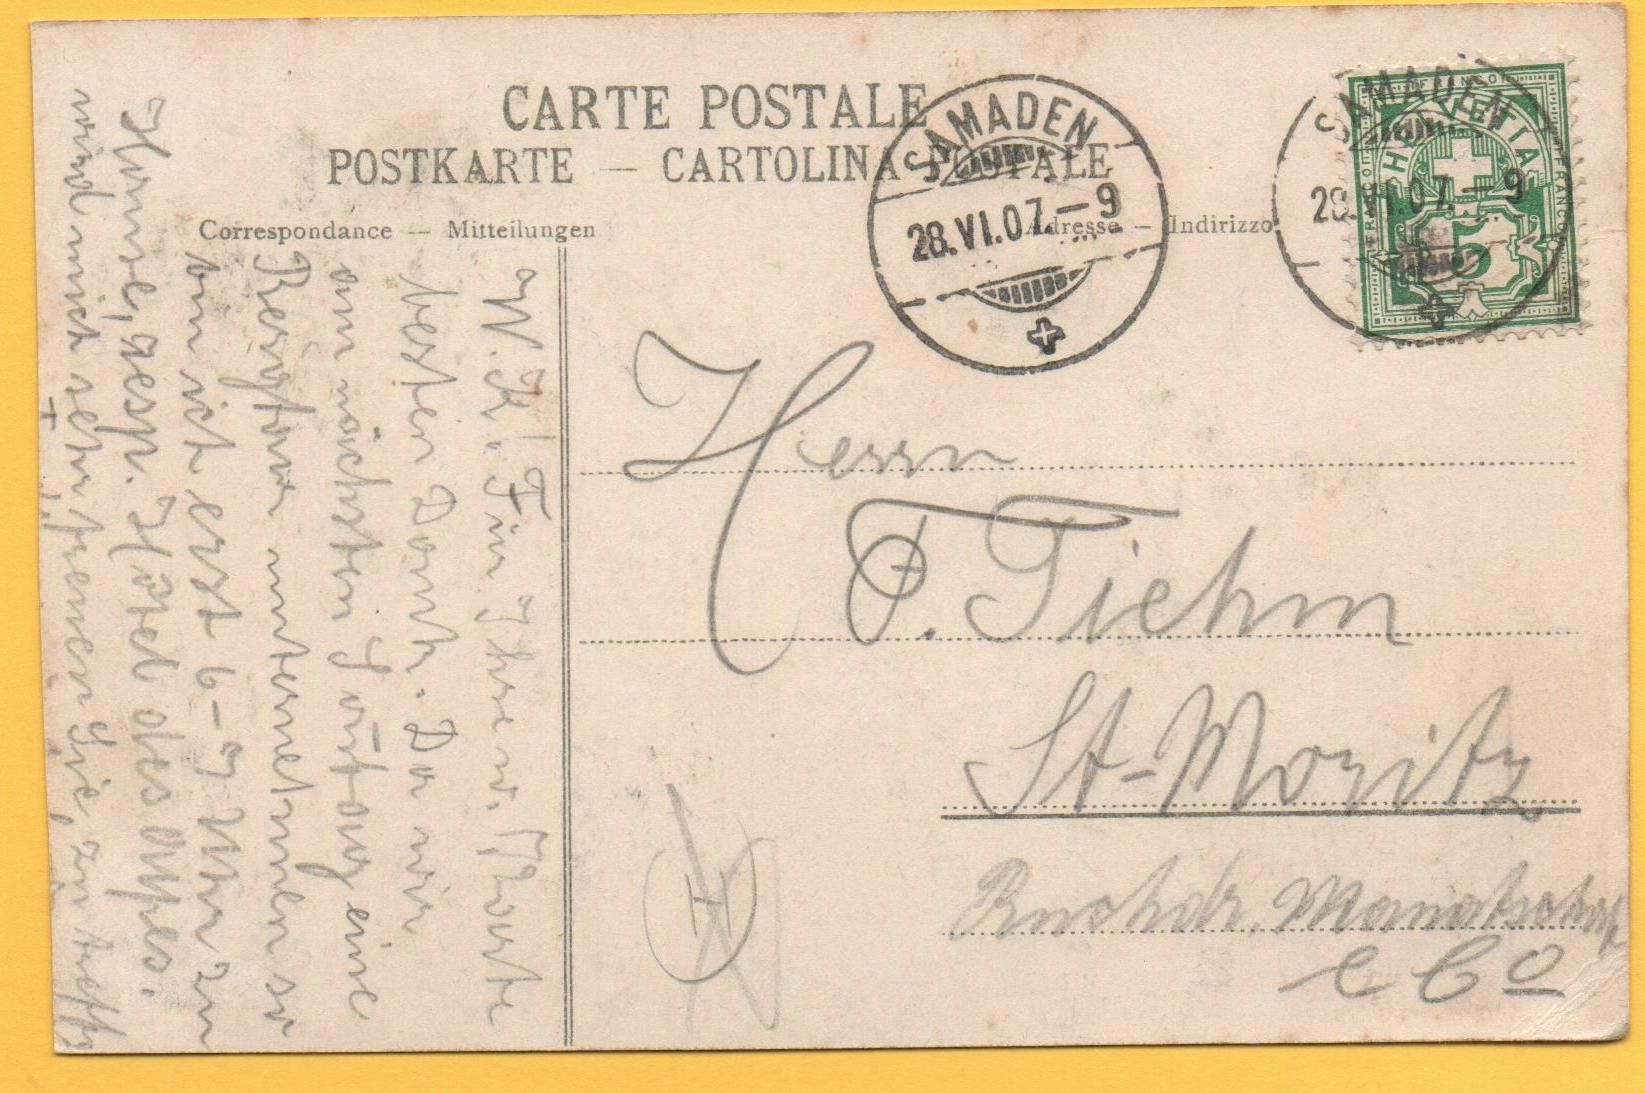 CARTE POSTALE
POSTKARTE — CARTOLINA POSTALE
Correspondance — Mitteilungen
Adresse — Indirizzo
SAMADEN
28.VI.07.–9
SAMADEN
28.VI.07.–9
HELVETIA
FRANCO
5
W. K.! Für Ihre w. Karte
besten Dank. Da wir
am nächsten Sonntag eine
Bergtour unternehmen so
bin ich erst 6–9 Uhr zu
Hause, resp. Hôtel des alpes.
wird mich sehr freuen Sie, zu treffen
Herrn
P. Tiehm
St-Moritz
Buchdr. Manatschal
e Co